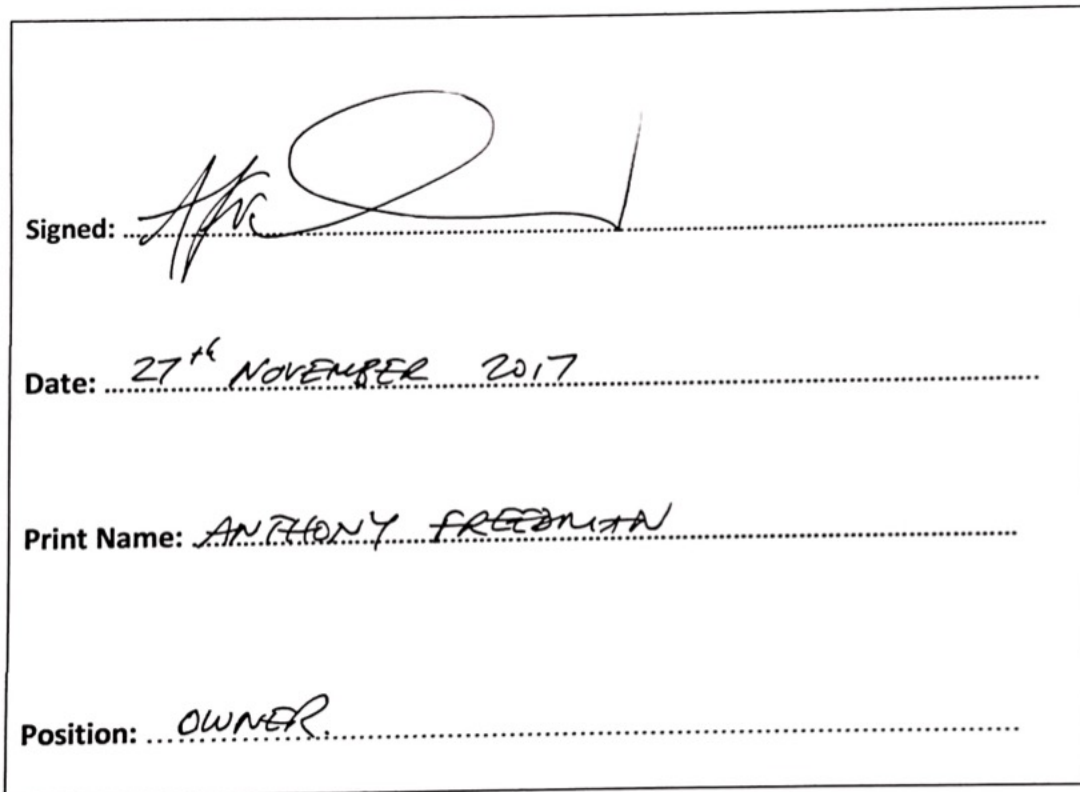 Signed:
Date: 27th NOVEMBER 2017
Print Name: ANTHONY FREEDMAN
Position: OWNER.